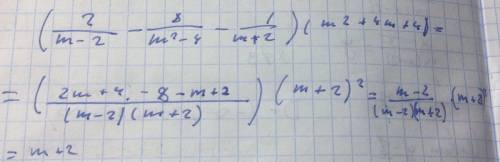 (2/(m-2) - 8/(m²-4) - 1/(m+2)) (m²+4m+4) =
= ((2m+4 - 8 - m+2)/((m-2)(m+2))) (m+2)² = (m-2)/((m-2)(m+2)) (m+2)²
= m+2